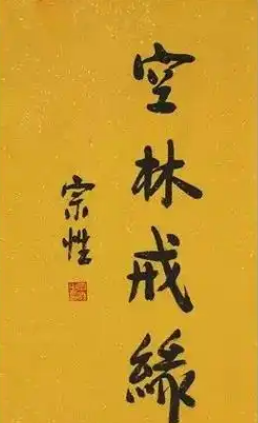 空林戒緣
宗性